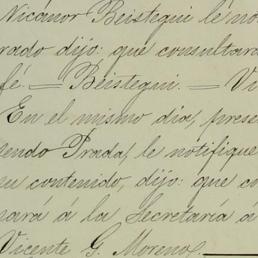 Nicanor Beistegui le no
rado dijo: que consultara
fé.= Beistegui.= Vi
En el mismo dia, prese
gendo Prada, le notifique
su contenido, dijo: que co
nará á la Secretaría á
Vicente G. Moreno.